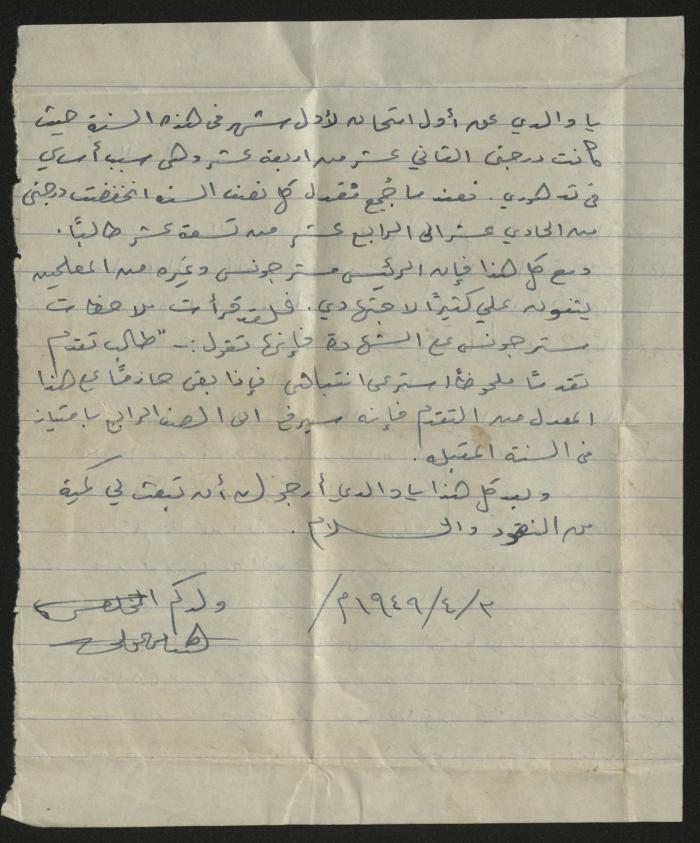 يا والدي عن أول امتحان لأول شهر في هذه السنة حيث
كانت درجتي الثاني عشر من اربعة عشر وهي سبب أساسي
في تدهوري. فعند ما جُمع مُعدل كل نصف السنه انخفضت درجتي
من الحادي عشر الى الرابع عشر من تسعة عشر طالبًا.
ومع كل هذا فإن الرئيس مستر جونس وغيره من المعلمين
يثنون علي كثيرًا لاجتهادي. فلقد قرأت ملاحظات
مستر جونس مع الشهادة فإنها تقول:- "طالب تقدم
تقدمًا ملحوظًا استرعى انتباهي فإذا بقى حازمًا على هذا
المعدل من التقدم فإنه سيرفع الى الصف الرابع بامتياز
في السنة المقبله.
وبعد كل هذا يا والدي أرجو أن تبعث لي كمية
من النقود والسلام.
ولدكم المخلص
٣/٤/١٩٤٩م/